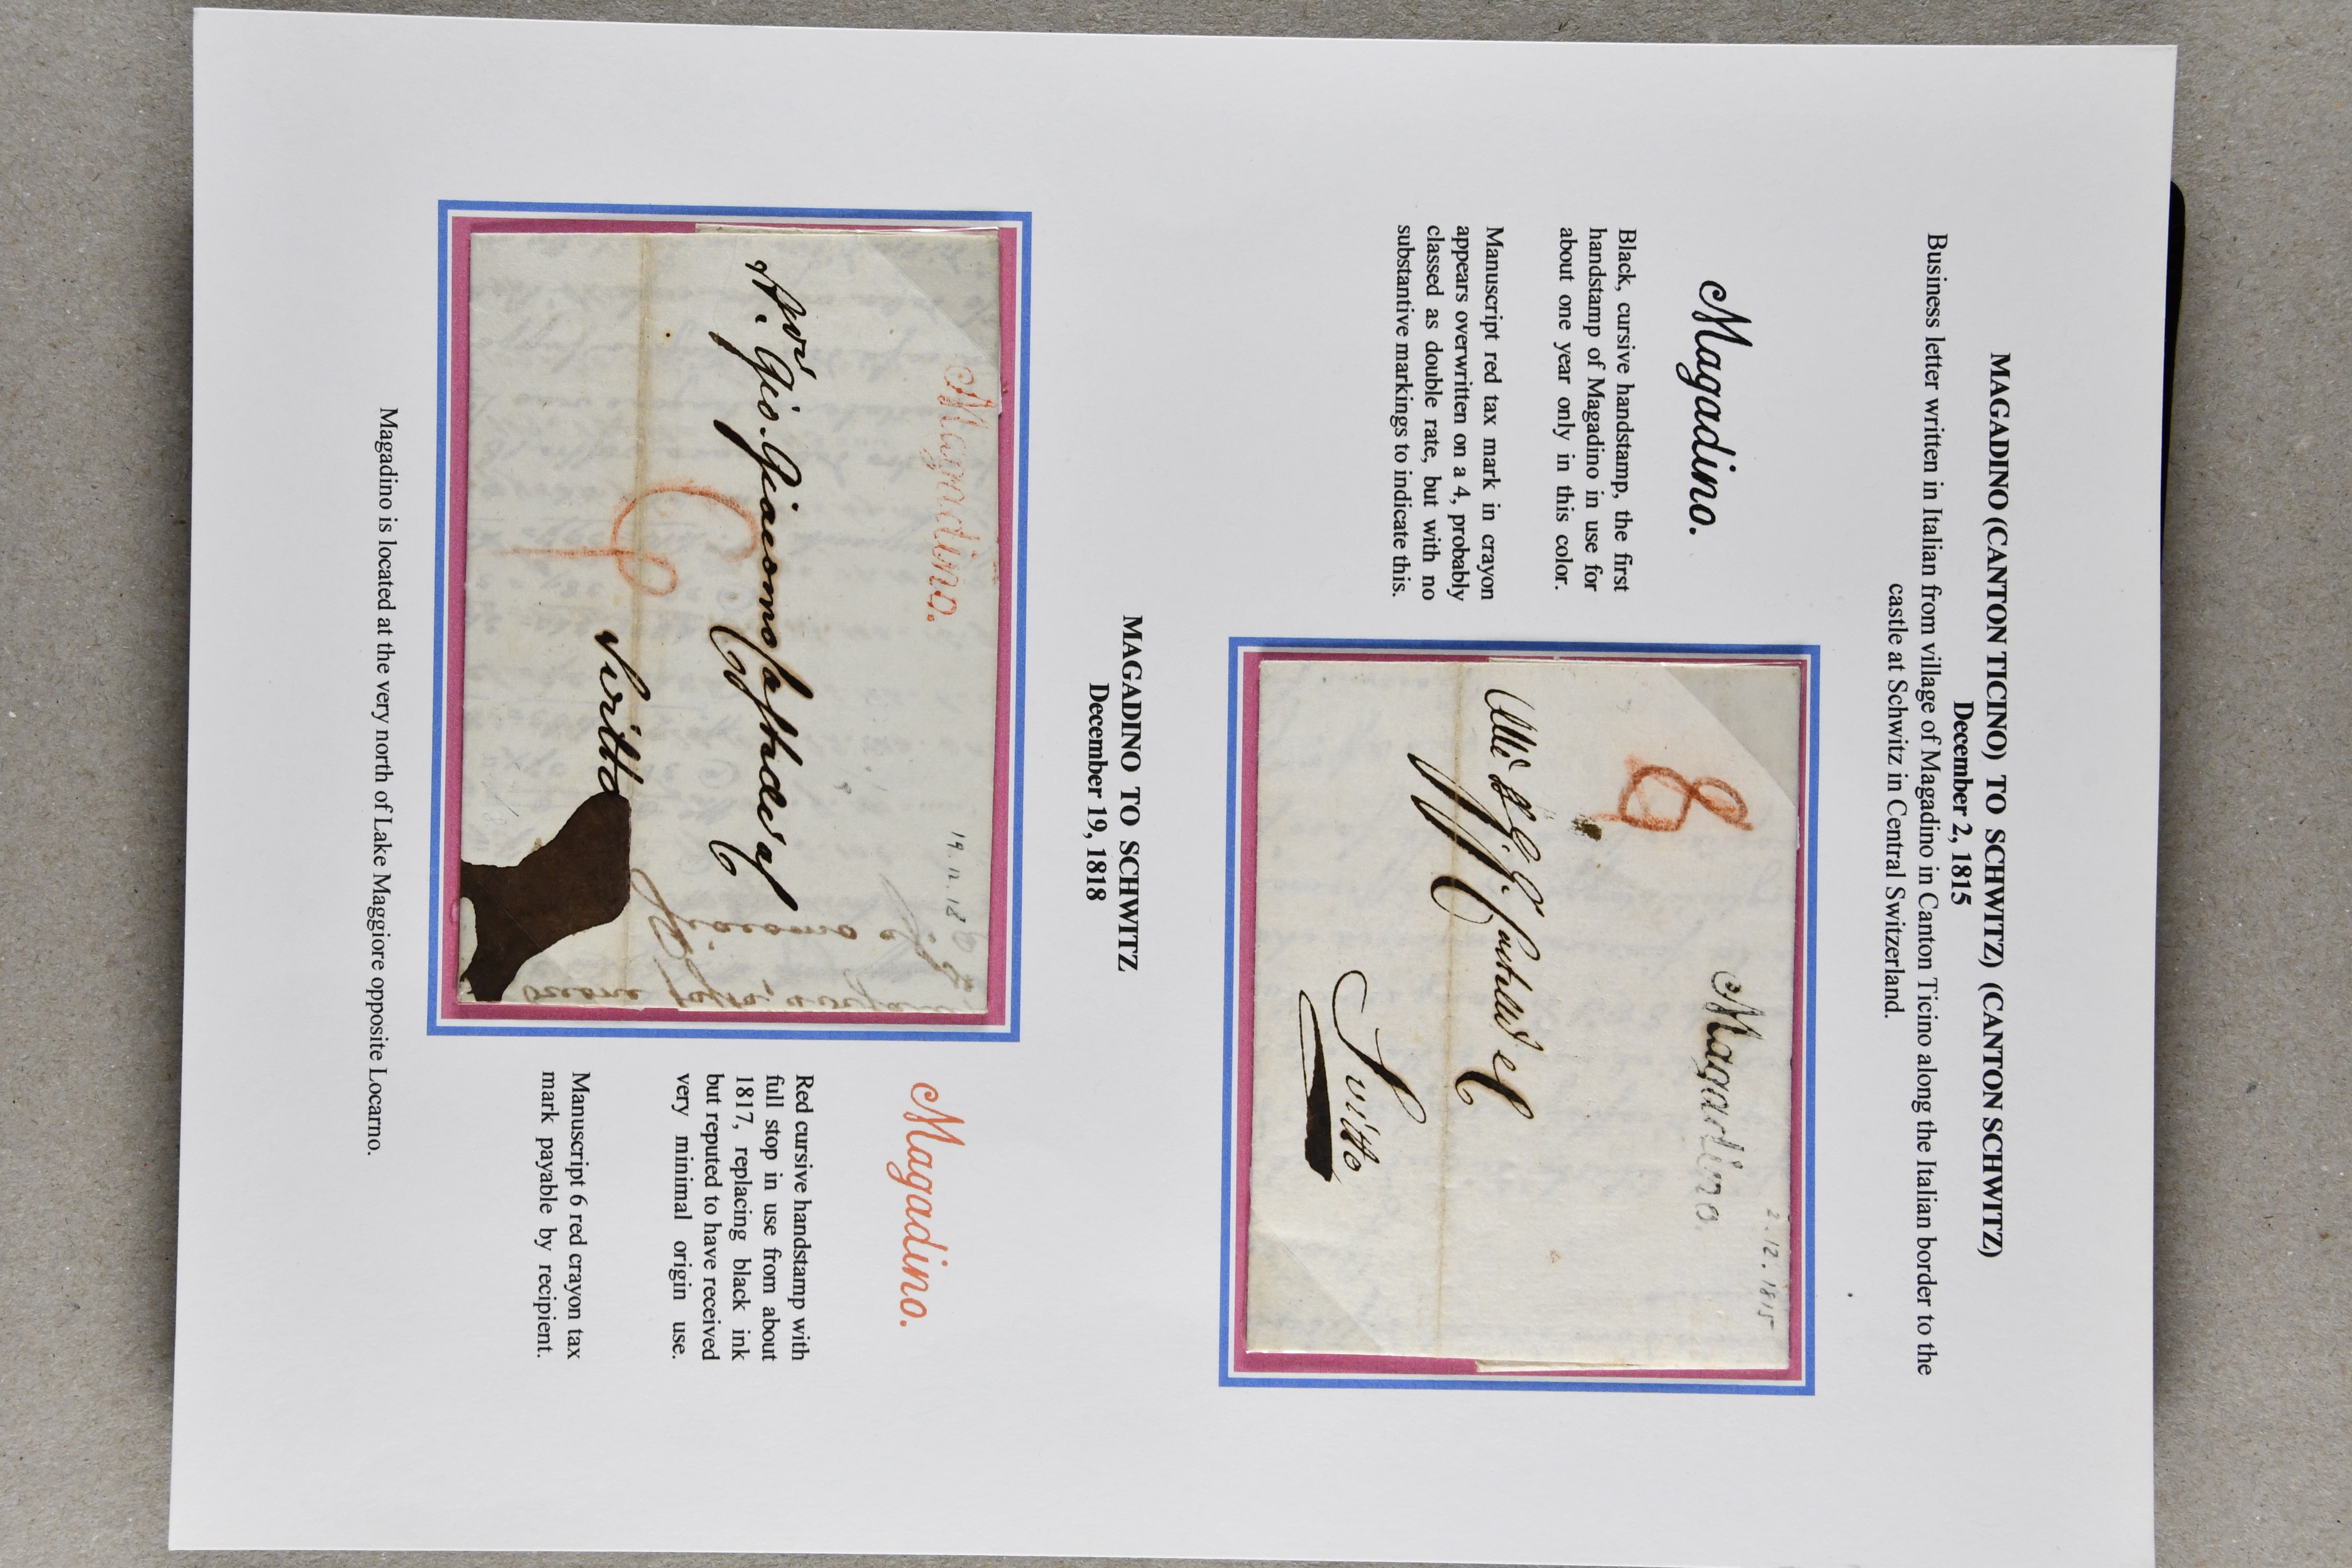 MAGADINO (CANTON TICINO) TO SCHWITZ) (CANTON SCHWITZ)
December 2, 1815
Business letter written in Italian from village of Magadino in Canton Ticino along the Italian border to the
castle at Schwitz in Central Switzerland.
Magadino.
Black, cursive handstamp, the first
handstamp of Magadino in use for
about one year only in this color.
Manuscript red tax mark in crayon
appears overwritten on a 4, probably
classed as double rate, but with no
substantive markings to indicate this.
2.12.1815
Magadino.
8
Svitto
MAGADINO TO SCHWITZ
December 19, 1818
Magadino.
19.12.18
Gio. Giacomo
6
Svitto
Magadino.
Red cursive handstamp with
full stop in use from about
1817, replacing black ink
but reputed to have received
very minimal origin use.
Manuscript 6 red crayon tax
mark payable by recipient.
Magadino is located at the very north of Lake Maggiore opposite Locarno.